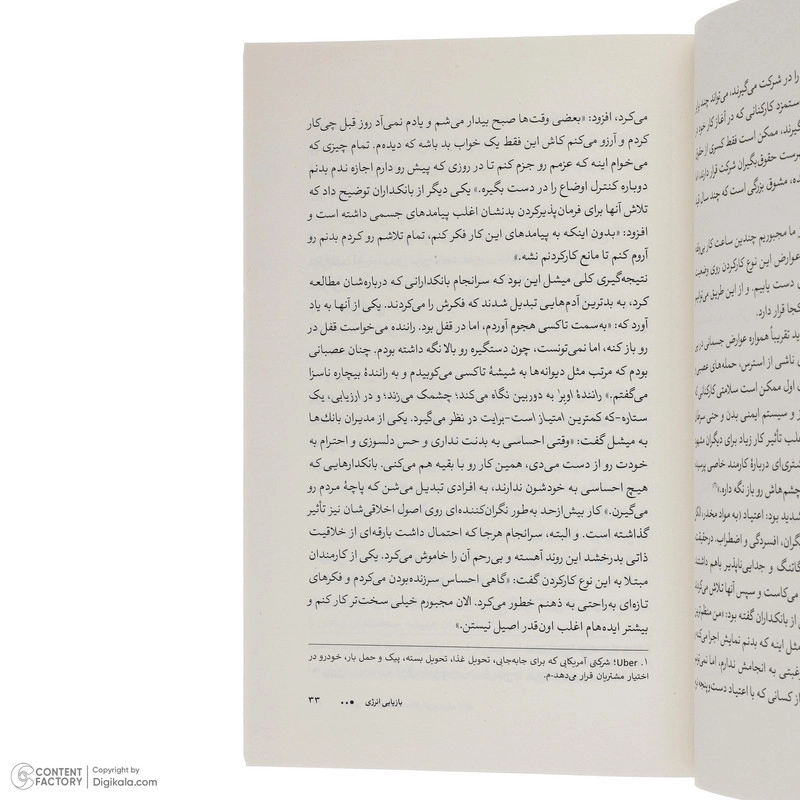 می‌کرد، افزود: «بعضی وقت‌ها صبح بیدار می‌شم و یادم نمی‌آد روز قبل چی‌کار
کردم و آرزو می‌کنم کاش این فقط یک خواب بد باشه که دیده‌م. تمام چیزی که
می‌خوام اینه که عزمم رو جزم کنم تا در روزی که پیش رو دارم اجازه ندم بدنم
دوباره کنترل اوضاع را در دست بگیره.» یکی دیگر از بانکداران توضیح داد که
تلاش آنها برای فرمان‌پذیرکردن بدنشان اغلب پیامدهای جسمی داشته است و
افزود: «بدون اینکه به پیامدهای این کار فکر کنم، تمام تلاشم رو کردم بدنم رو
آروم کنم تا مانع کارکردنم نشه.»
نتیجه‌گیری کلی میشل این بود که سرانجام بانکدارانی که درباره‌شان مطالعه
کرد، به بدترین آدم‌هایی تبدیل شدند که فکرش را می‌کردند. یکی از آنها به یاد
آورد که: «به‌سمت تاکسی هجوم آوردم، اما در قفل بود. راننده می‌خواست قفل در
رو باز کنه، اما نمی‌تونست، چون دستگیره رو بالا نگه داشته بودم. چنان عصبانی
بودم که مرتب مثل دیوانه‌ها به شیشهٔ تاکسی می‌کوبیدم و به رانندهٔ بیچاره ناسزا
می‌گفتم.» رانندهٔ اوبر۱ به دوربین نگاه می‌کند؛ چشمک می‌زند؛ و در ارزیابی، یک
ستاره-که کمترین امتیاز است-برایت در نظر می‌گیرد. یکی از مدیران بانک‌ها
به میشل گفت: «وقتی احساسی به بدنت نداری و حس دلسوزی و احترام به
خودت رو از دست می‌دی، همین کار رو با بقیه هم می‌کنی. بانکدارهایی که
هیچ احساسی به خودشون ندارند، به افرادی تبدیل می‌شن که پاچهٔ مردم رو
می‌گیرن.» کار بیش‌ازحد به‌طور نگران‌کننده‌ای روی اصول اخلاقی‌شان نیز تأثیر
گذاشته است. و البته، سرانجام هرجا که احتمال داشت بارقه‌ای از خلاقیت
ذاتی بدرخشد این روند آهسته و بی‌رحم آن را خاموش می‌کرد. یکی از کارمندان
مبتلا به این نوع کارکردن گفت: «گاهی احساس سرزنده‌بودن می‌کردم و فکرهای
تازه‌ای به‌راحتی به ذهنم خطور می‌کرد. الان مجبورم خیلی سخت‌تر کار کنم و
بیشتر ایده‌هام اغلب اون‌قدر اصیل نیستن.»
۱. Uber؛ شرکتی آمریکایی که برای جابه‌جایی، تحویل غذا، تحویل بسته، پیک و حمل بار، خودرو در
اختیار مشتریان قرار می‌دهد-م.
بازیابی انرژی ۳۳
را در شرکت می‌گیرند، می‌تواند چند
ستمزد کارکنانی که در آغاز کار خود
گیرند، ممکن است فقط کسری از
حقوق‌بگیران شرکت قرار دارند،
مشوق بزرگی است که چند سال
ما مجبوریم چندین ساعت کار
عوارض این نوع کارکردن روی
دست یابیم. و از این طریق
کجا قرار دارد.
تقریباً همواره عوارض جسمانی
ناشی از استرس، حمله‌های
اول ممکن است سلامتی
و سیستم ایمنی بدن و حتی
تأثیر کار زیاد برای دیگران
دربارهٔ کارمند خاصی
چشم‌هاش رو باز نگه داره.»
شدید بود: اعتیاد (به مواد مخدر،
افسردگی و اضطراب.
و جدایی‌ناپذیر باهم
می‌کاست و سپس آنها تلاش
از بانکداران گفته بود: «من
مثل اینه که بدنم نمایش اجرا
به انجامش ندارم، اما
از کسانی که با اعتیاد
CONTENT FACTORY
Copyright by
Digikala.com